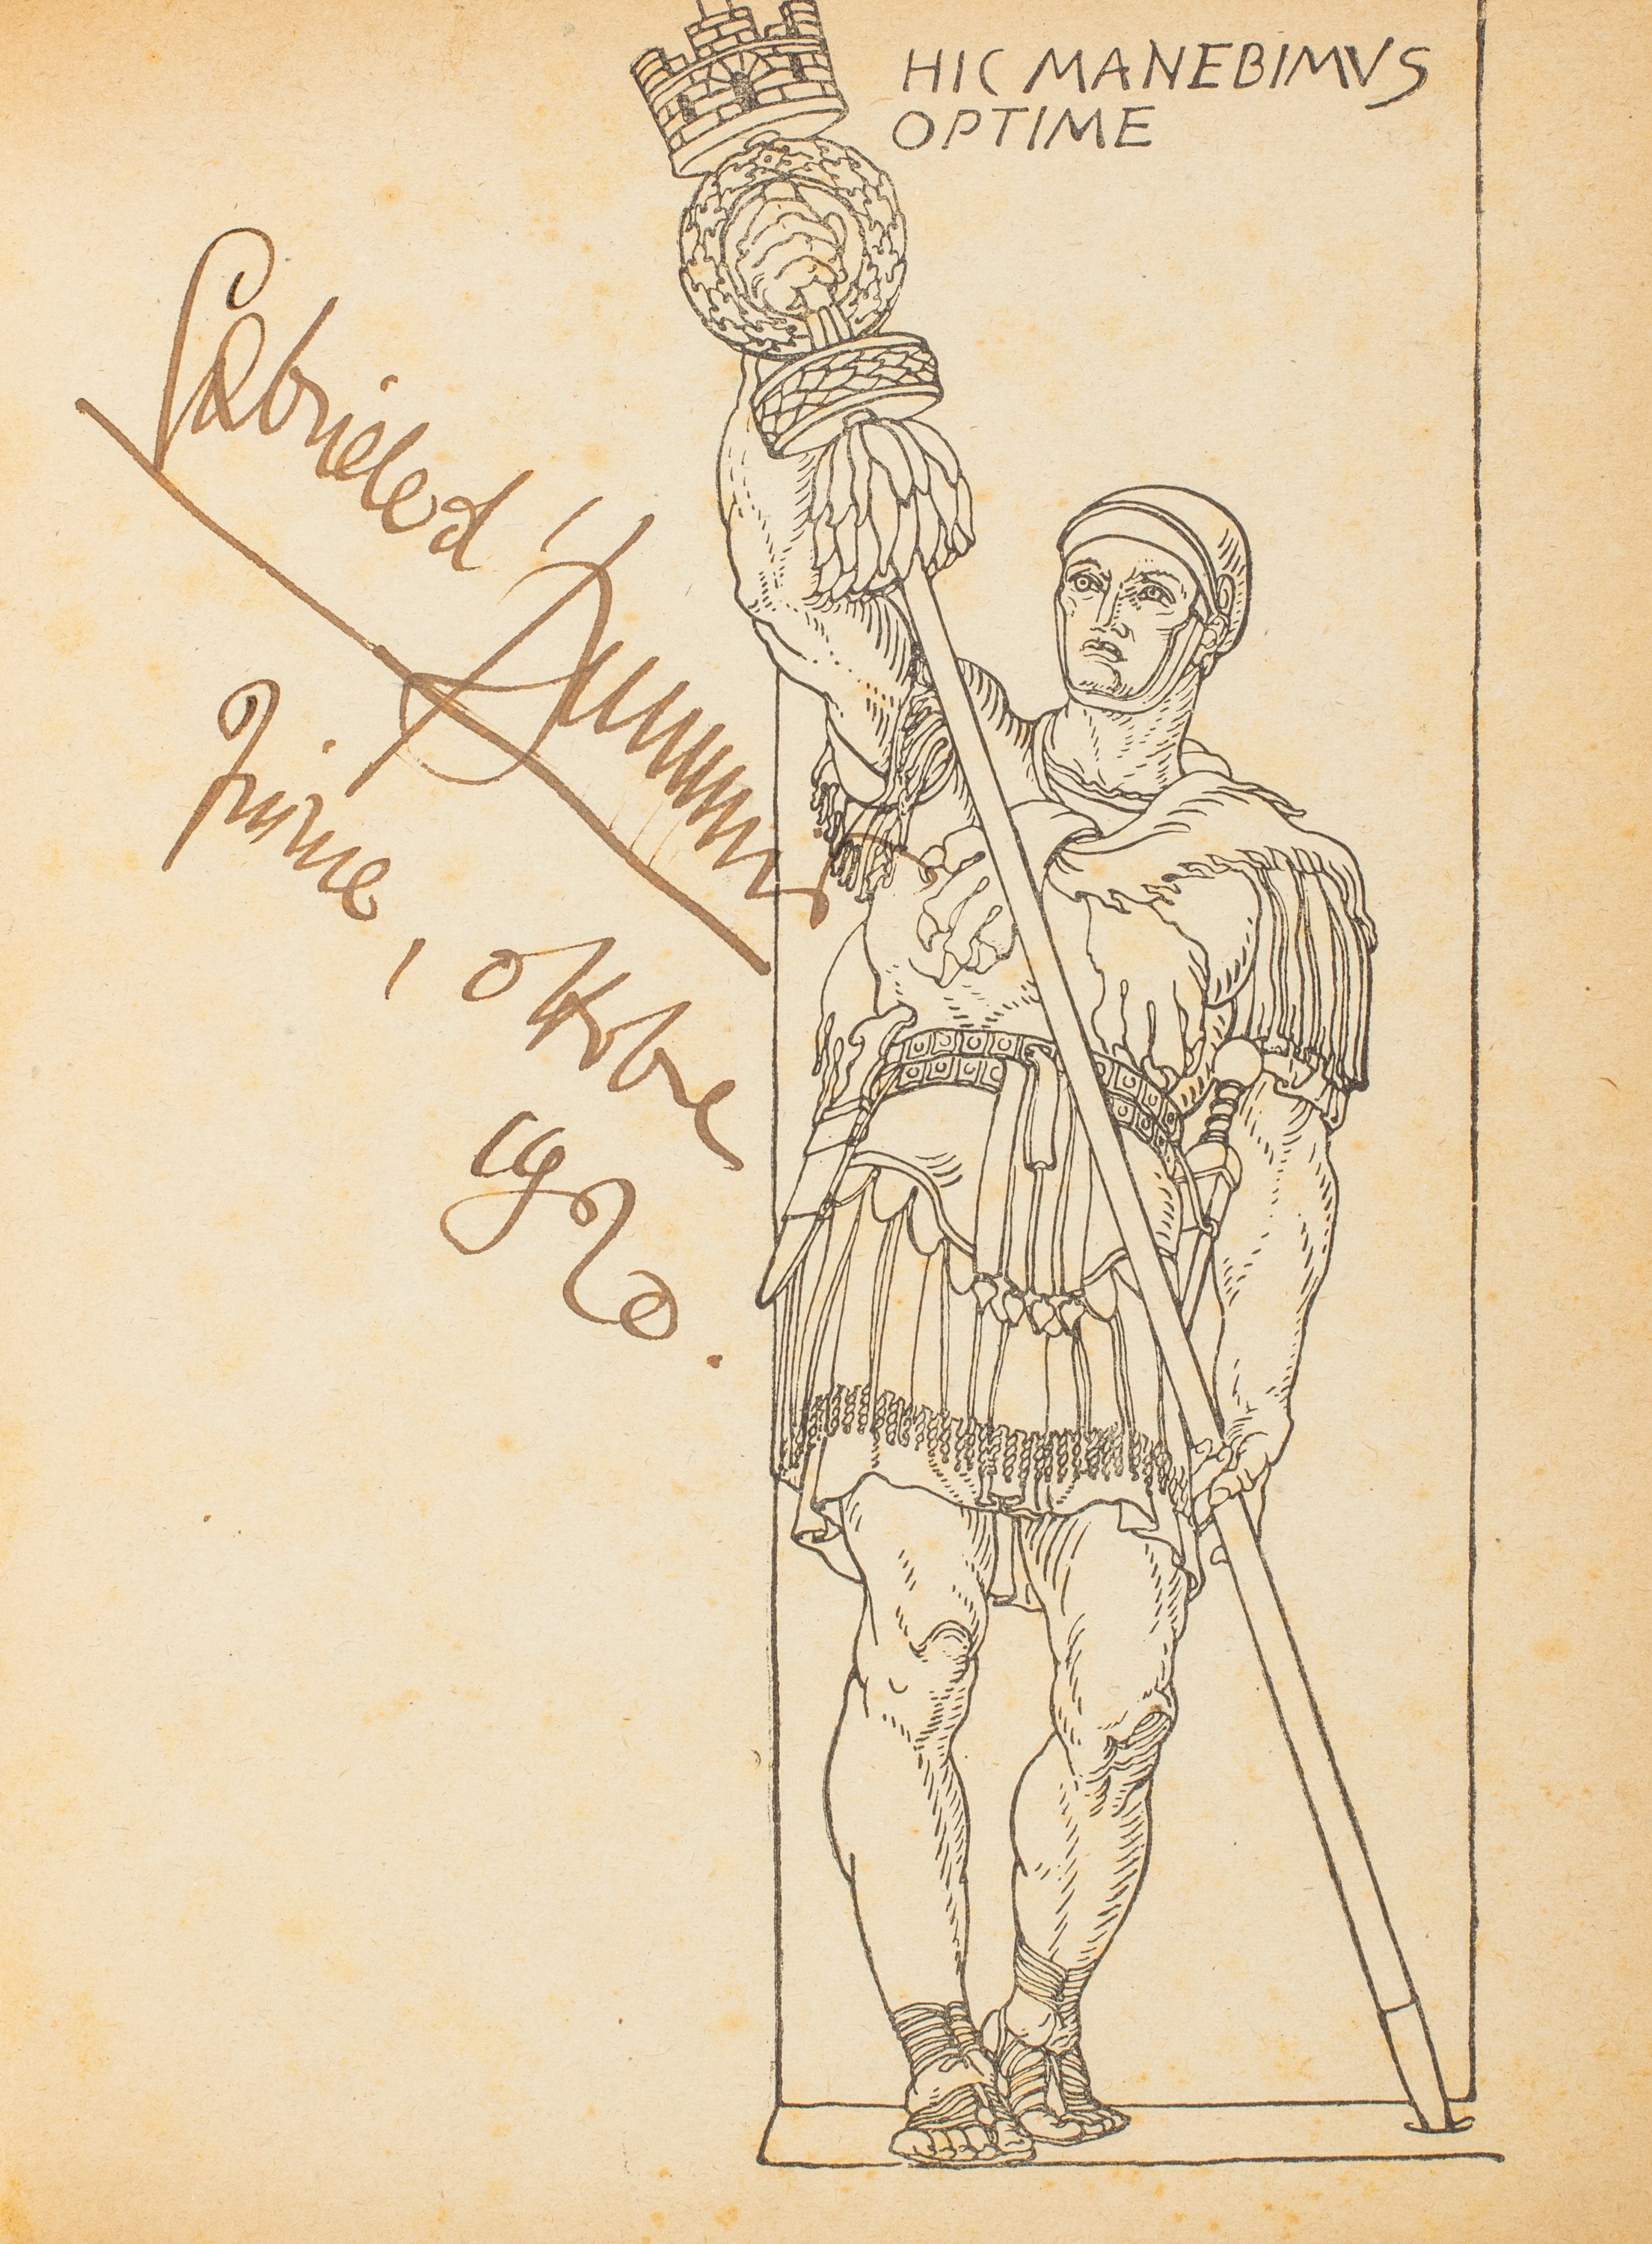 HIC MANEBIMVS
OPTIME
Gabriele d'Annunzio
Fiume, ottobre
1920.